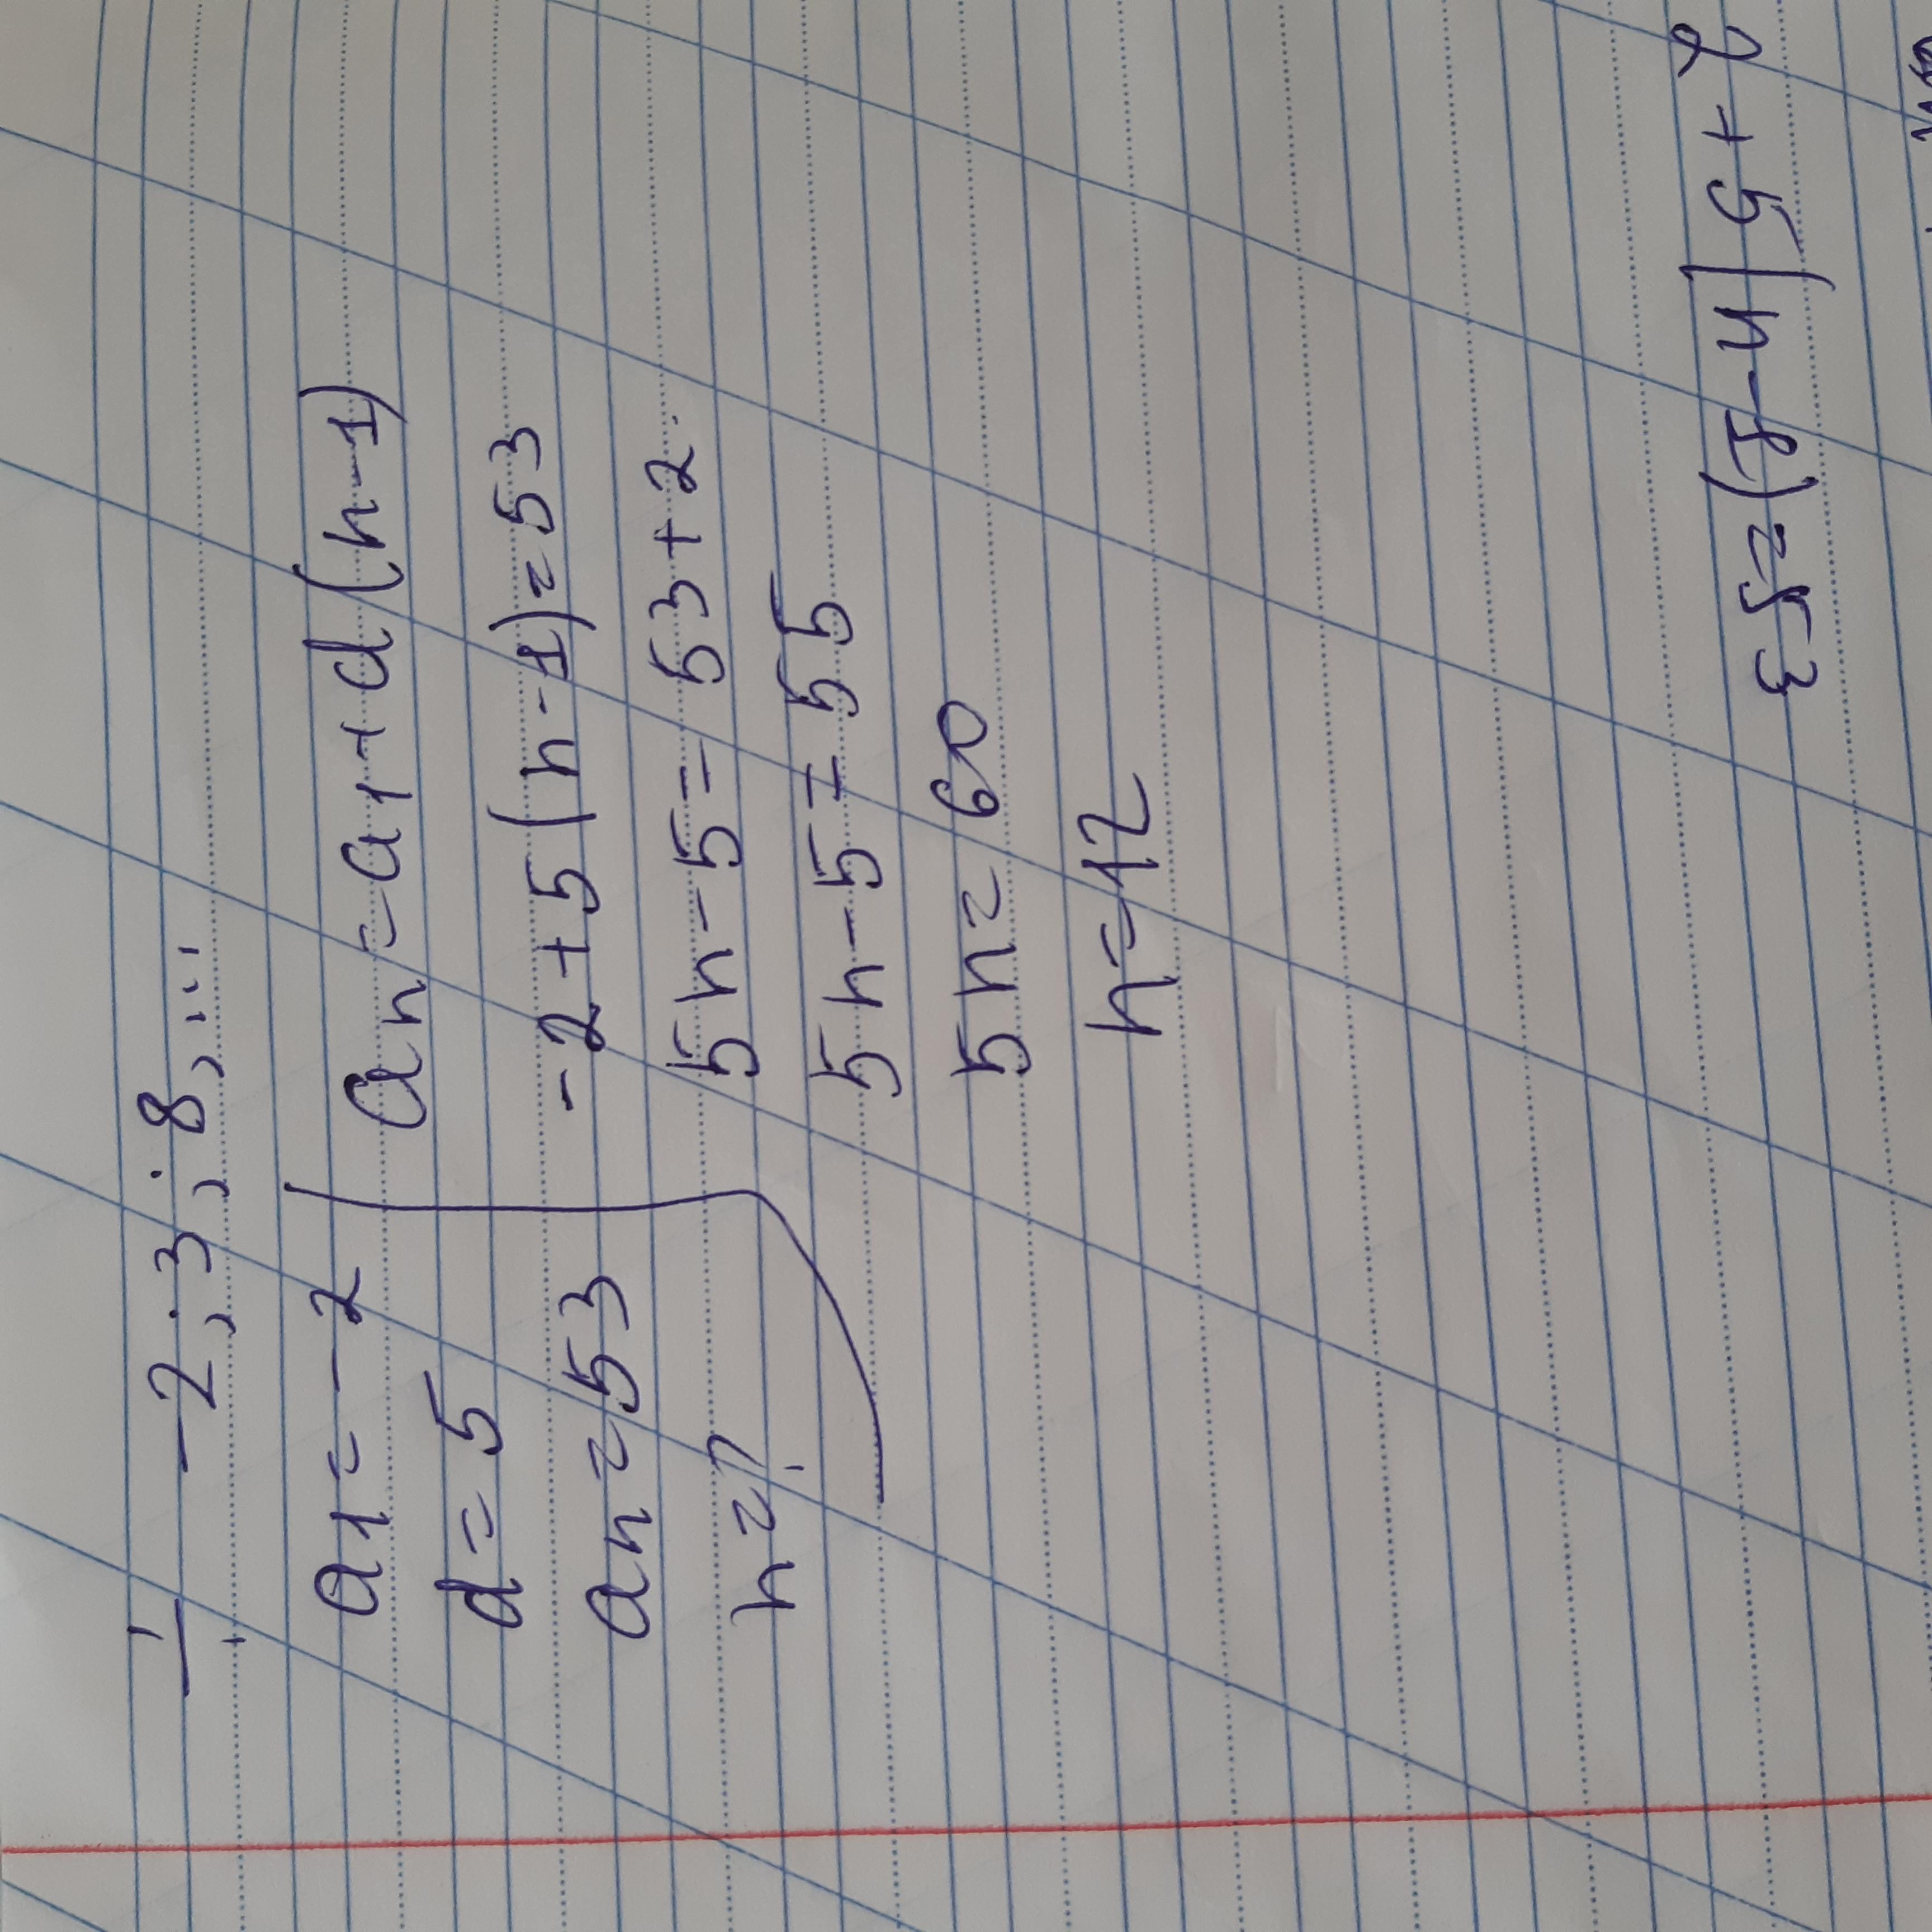 -2; 3; 8, ...
a1 = -2
d = 5
an = 53
n = ?
an = a1 + d (n-1)
-2 + 5 (n-1) = 53
5n - 5 = 53 + 2
5n - 5 = 55
5n = 60
n = 12
2 + 5 (n-1) = 53